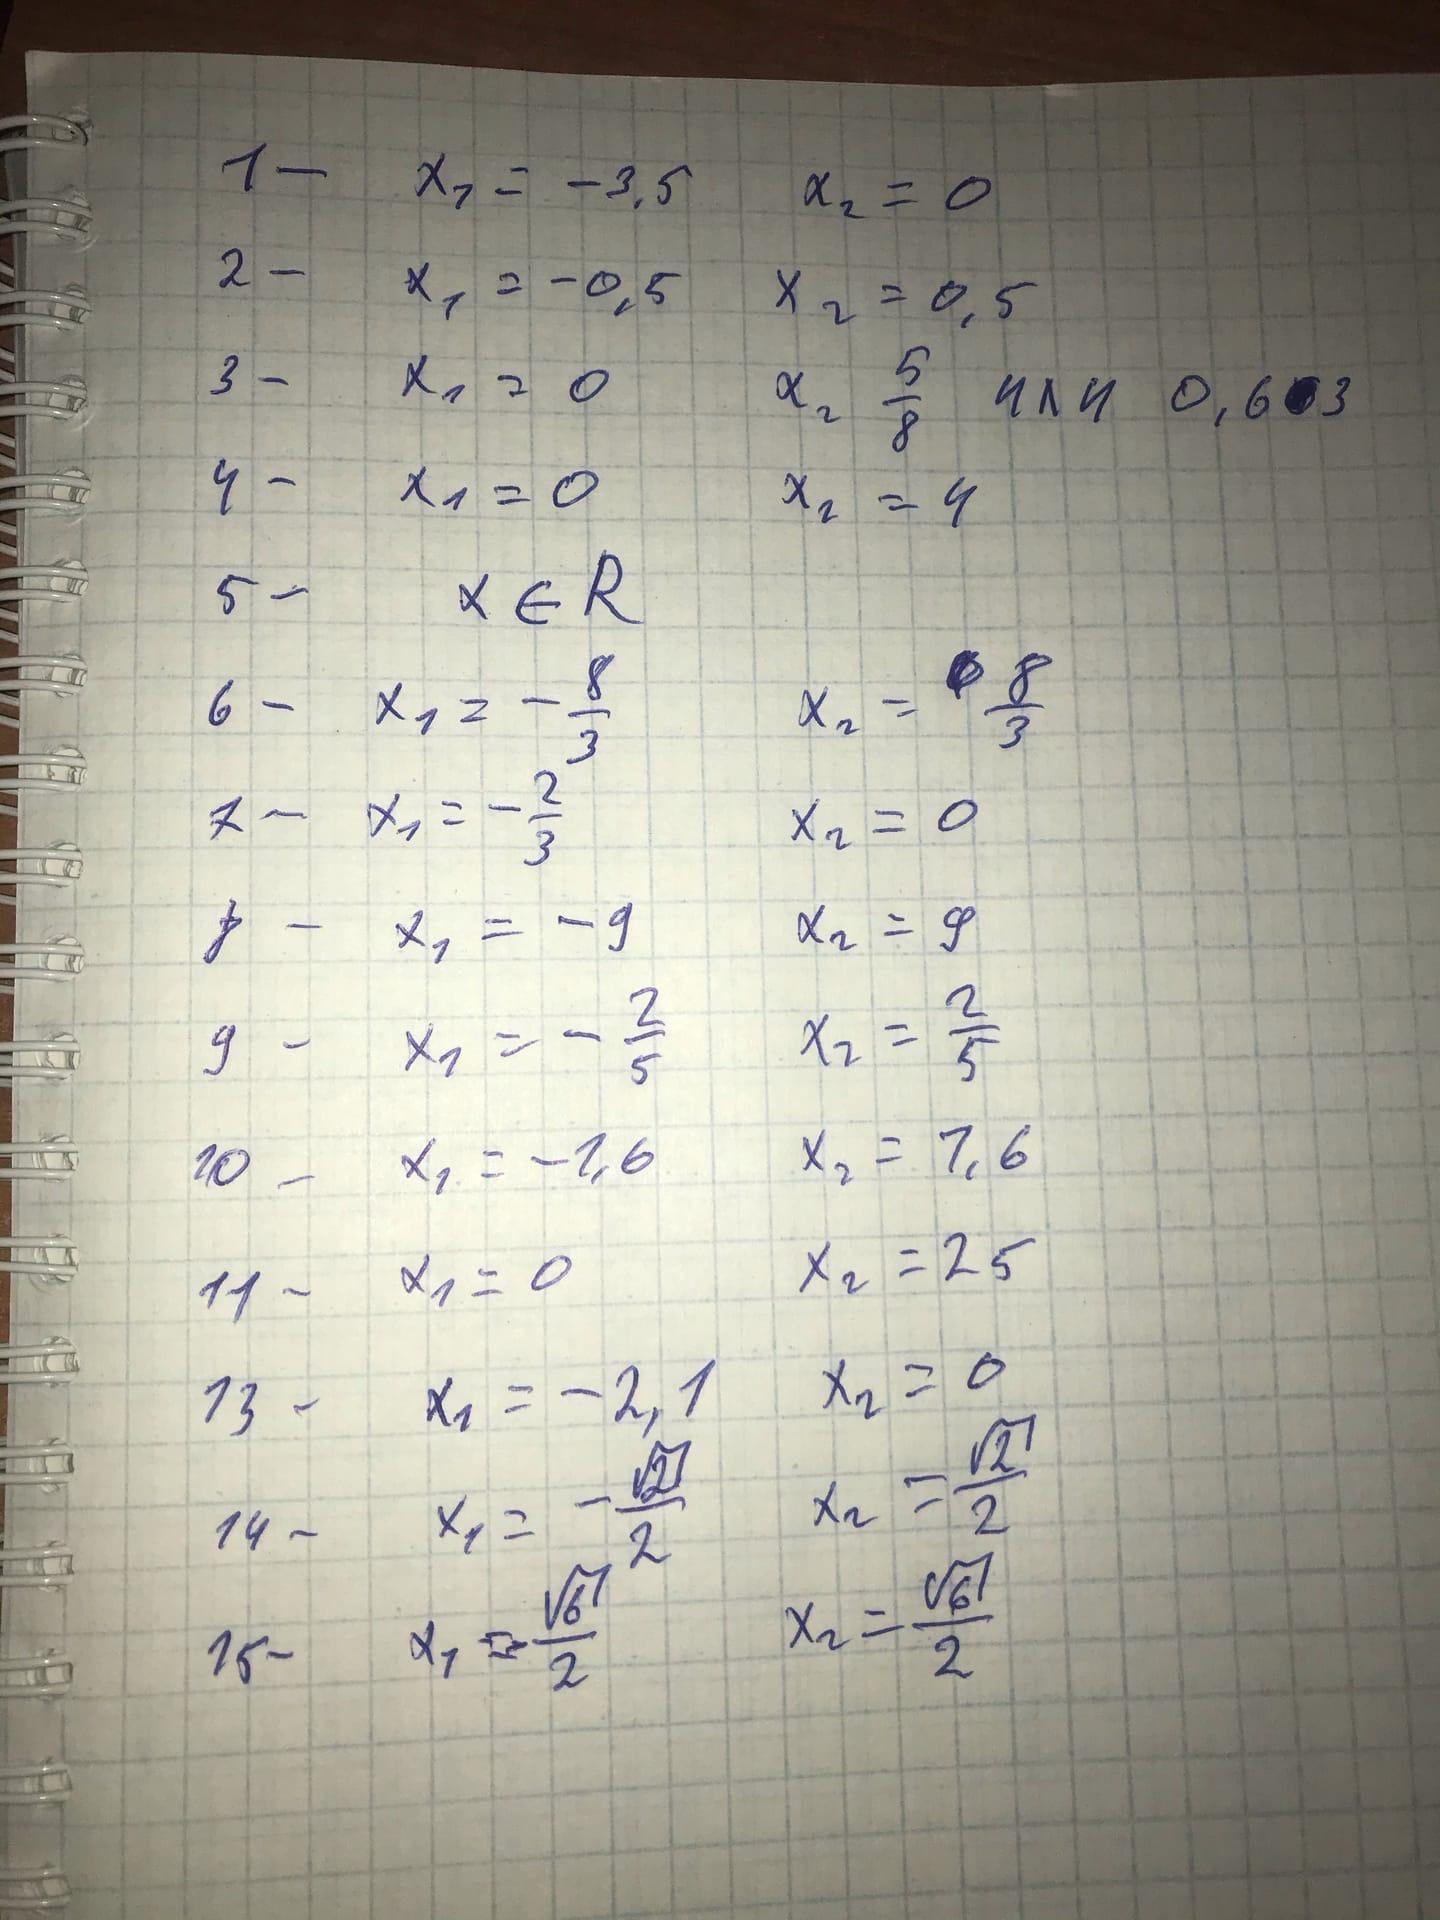 1 - x₁ = -3,5 x₂ = 0
2 - x₁ = -0,5 x₂ = 0,5
3 - x₁ = 0 x₂ 5/8 или 0,63
4 - x₁ = 0 x₂ = 4
5 - x ∈ R
6 - x₁ = -8/3 x₂ = 8/3
7 - x₁ = -2/3 x₂ = 0
8 - x₁ = -9 x₂ = 9
9 - x₁ = -2/5 x₂ = 2/5
10 - x₁ = -1,6 x₂ = 1,6
11 - x₁ = 0 x₂ = 25
13 - x₁ = -2,1 x₂ = 0
14 - x₁ = -√2/2 x₂ = √2/2
15 - x₁ = -√6/2 x₂ = √6/2